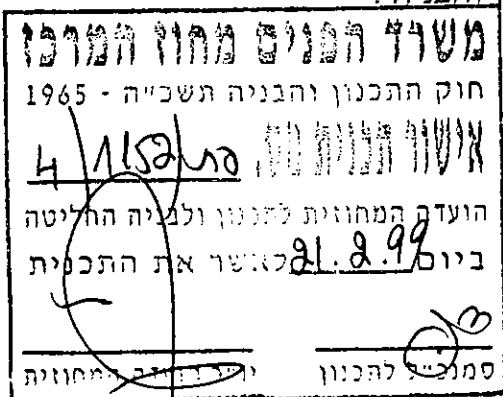 משרד הפנים מחוז המרכז
חוק התכנון והבניה תשכ״ה - 1965
אישור תכנית מס. פת/1152/4
הועדה המחוזית לתכנון ולבניה החליטה
ביום 21.2.99 לאשר את התכנית
סמנכ״ל לתכנון
יו״ר הועדה המחוזית